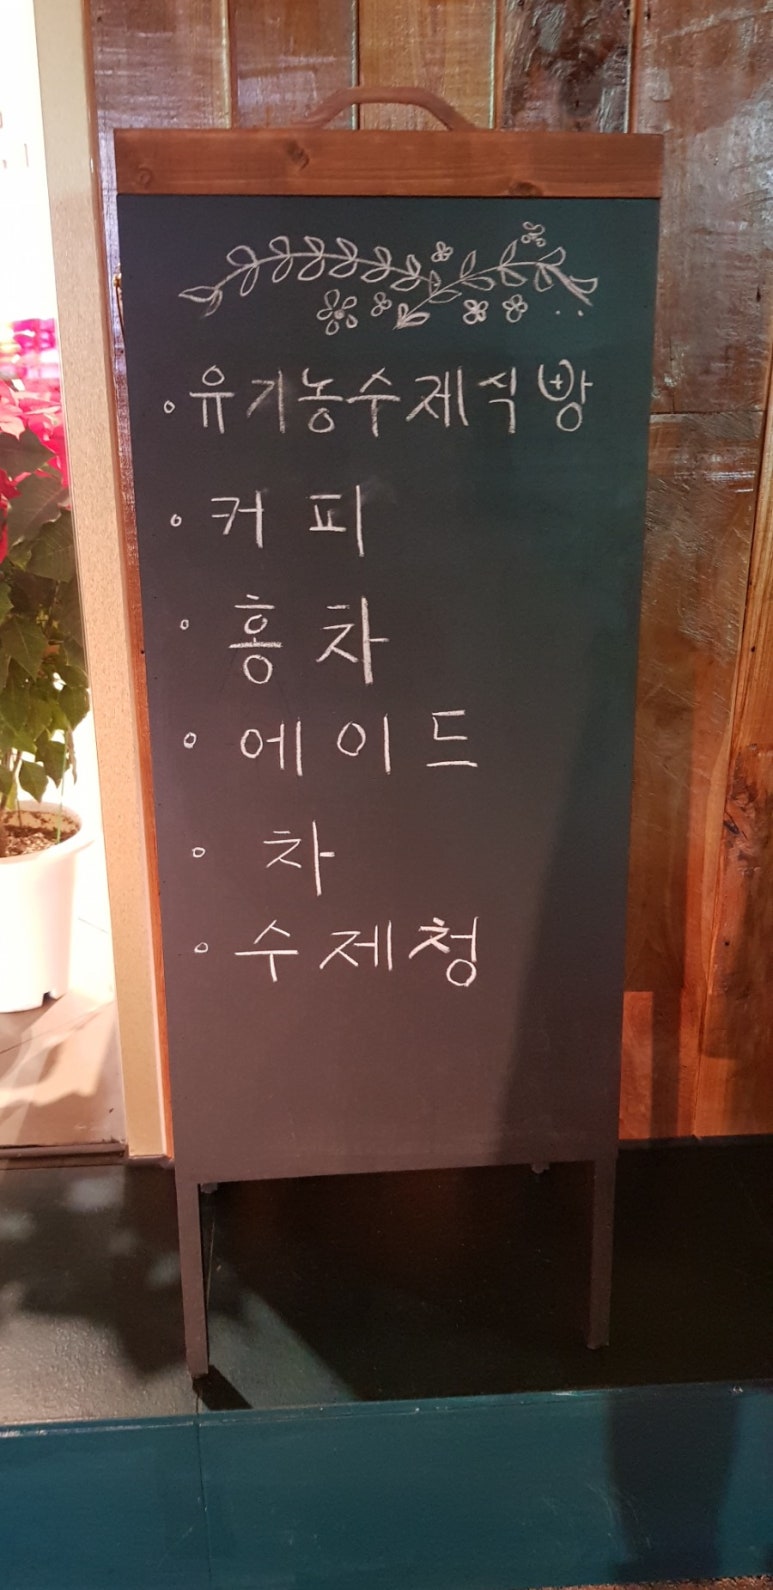 ◦유기농수제식빵
◦커피
◦홍차
◦에이드
◦차
◦수제청